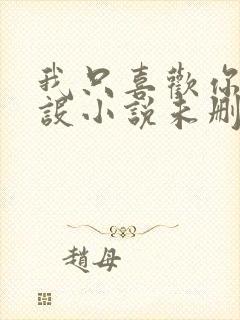 我只喜歡你
設小說未刪
趙母